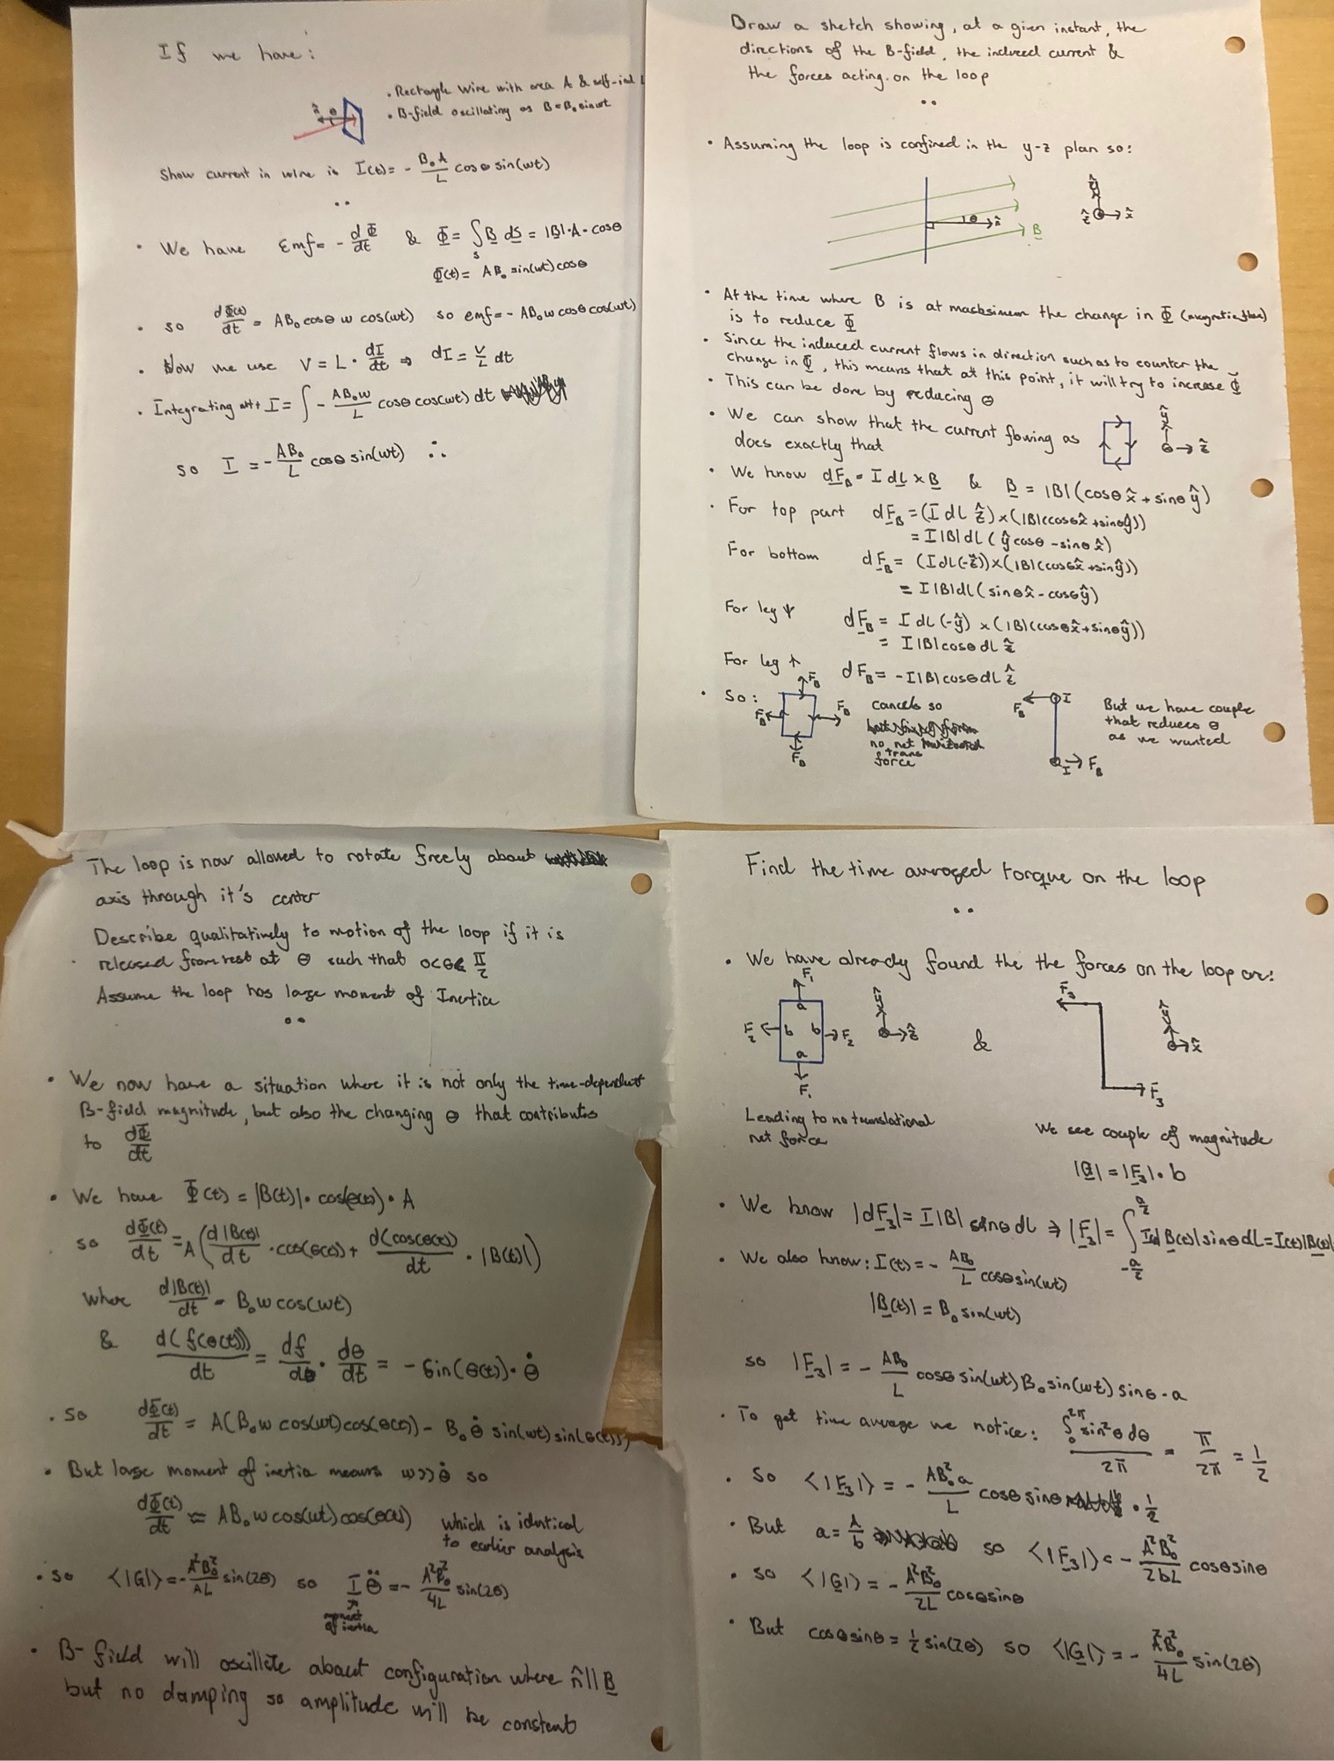 If we have:
. Rectangle wire with area A & self-ind L
. B-field oscillating as B=B₀sinwt
n̂ θ
Show current in wire is I(t)= - B₀A/L cosθ sin(wt)
. We have Emf= - dΦ/dt & Φ= ∫ₛ B dS = |B|·A·cosθ
Φ(t)= AB₀ sin(wt)cosθ
. so dΦ(t)/dt = AB₀cosθ w cos(wt) so emf= - AB₀wcosθcos(wt)
. Now we use V = L · dI/dt ⇒ dI = V/L dt
. Integrating I= ∫ - AB₀w/L cosθcos(wt) dt
so I = - AB₀/L cosθ sin(wt) ∴
Draw a sketch showing, at a given instant, the
directions of the B-field, the induced current &
the forces acting. on the loop
. Assuming the loop is confined in the y-z plan so:
θ n̂ B ŷ ẑ x̂
. At the time where B is at the change in Φ
is to reduce Φ
. Since the induced current flows in direction such as to counter the
change in Φ, this means that at this point, it will try to increase Φ
. This can be done by reducing θ
. We can show that the current flowing as ŷ ẑ
does exactly that
. We know dF_B = I dL × B & B = |B|(cosθ x̂ + sinθ ŷ)
. For top part dF_B = (I dL ẑ)×(|B|(cosθx̂ +sinθŷ))
= I|B|dL(ŷcosθ - sinθ x̂)
For bottom dF_B = (IdL(-ẑ))×(|B|(cosθx̂ +sinθŷ))
= I|B|dL(sinθx̂ - cosθŷ)
For leg ↓ dF_B = I dL (-ŷ) ×(|B|(cosθx̂+sinθŷ))
= I|B|cosθ dL ẑ
For leg ↑ dF_B = -I|B|cosθdL ẑ
. So: F_B F_B F_B F_B
cancels so
no net
trans
force
F_B I I F_B
But we have couple
that reduces θ
as we wanted
The loop is now allowed to rotate freely about
axis through it's center
Describe qualitatively to motion of the loop if it is
released from rest at θ such that 0<θ< π/2
Assume the loop has large moment of Inertia
. We now have a situation where it is not only the time-dependent
B-field magnitude, but also the changing θ that contributes
to dΦ/dt
. We have Φ(t) = |B(t)|· cos(θ(t)) · A
so dΦ(t)/dt = A(d|B(t)|/dt · cos(θ(t)) + d(cos(θ(t)))/dt · |B(t)|)
where d|B(t)|/dt = B₀wcos(wt)
& d(f(θ(t)))/dt = df/dθ · dθ/dt = - sin(θ(t))· θ̇
. So dΦ(t)/dt = A(B₀w cos(wt)cos(θ(t)) - B₀ θ̇ sin(wt)sin(θ(t)))
. But large moment of inertia means w>>θ̇ so
dΦ(t)/dt ≈ AB₀ wcos(wt)cos(θ(t)) which is identical
to earlier analysis
. so <|G|> = - A²B₀²/4L sin(2θ) so I θ̈ = - A²B₀²/4L sin(2θ)
moment
of inertia
. B-field will oscillate about configuration where n̂||B
but no damping so amplitude will be constant
Find the time averaged torque on the loop
. We have already found the the forces on the loop are:
F₁ a F₂ b b F₂ a F₁ ŷ ẑ & F₃ F₃ ŷ x̂
Leading to no translational
net force
We see couple of magnitude
|G| = |F₃| · b
. We know |dF₃|= I|B| sinθ dL ⇒ |F₃|= ∫ I(t)|B(t)|sinθ dL=I(t)|B(t)|
a/2
-a/2
. We also know: I(t)= - AB₀/L cosθsin(wt)
|B(t)| = B₀ sin(wt)
so |F₃| = - AB₀/L cosθ sin(wt)B₀sin(wt) sinθ · a
. To get time average we notice: ∫₀^2π sin²θ dθ / 2π = π/2π = 1/2
. So <|F₃|> = - AB₀²a/L cosθ sinθ · 1/2
. But a= A/b so <|F₃|> = - A²B₀²/2bL cosθsinθ
. so <|G|> = - A²B₀²/2L cosθsinθ
. But cosθsinθ = 1/2 sin(2θ) so <|G|> = - A²B₀²/4L sin(2θ)